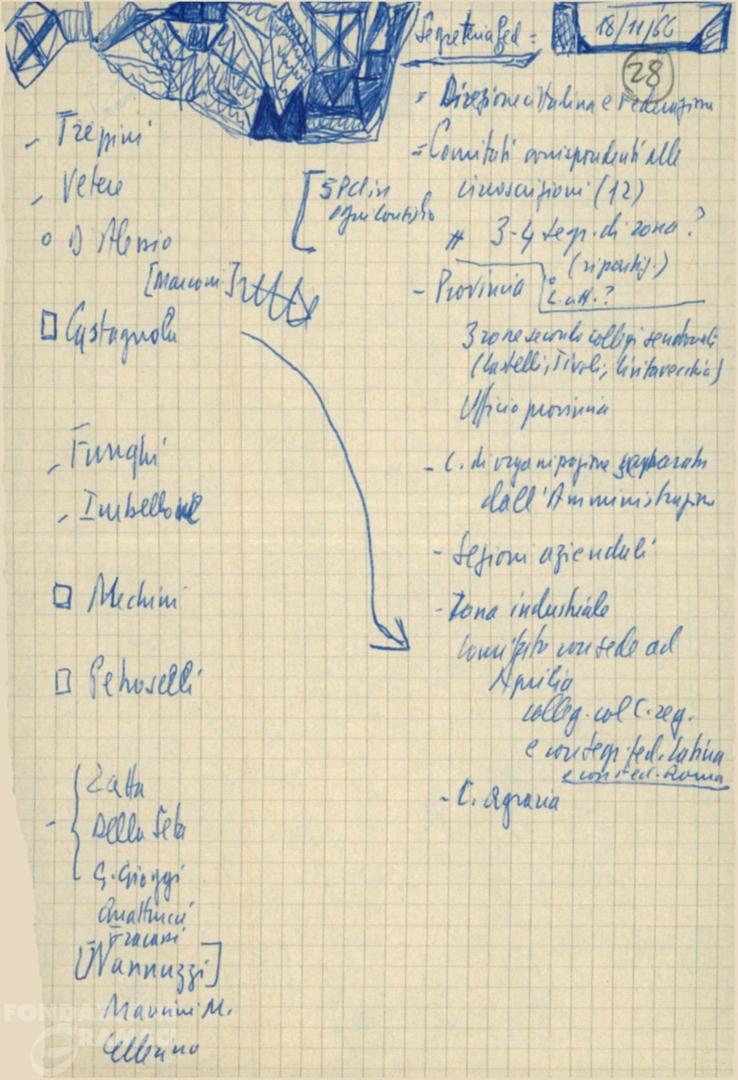 Segreteria Fed =
18/11/66
28
= Direzione cittadina e Federazione
= Comitati corrispondenti alle
circoscrizioni (12)
# 3-4 segr. di zona?
(ripartiz.)
- Provincia
c. citt.?
3 zone secondo collegi senatoriali
(Castelli, Tivoli, Civitavecchia)
Ufficio provincia
- C. di organizzazione separata
dall'Amministrazione
- Sezioni aziendali
- Zona industriale
Comitato con sede ad
Aprilia
colleg. col C. reg.
e con segr. fed. Latina
e con fed. Roma
- C. Agraria
- Trepini
- Vetere
[5 Pcl in
ogni
o D'Alessio
[Marconi]
□ Castagnola
- Funghi
- Imbellone
□ Mechini
□ Petroselli
- { Zatta
Della Seta
G. Gioggi
Quattrucci
Fracassi
[Nannuzzi]
Mancini M.
Cellerino
FONDAZIONE
GRAMSCI